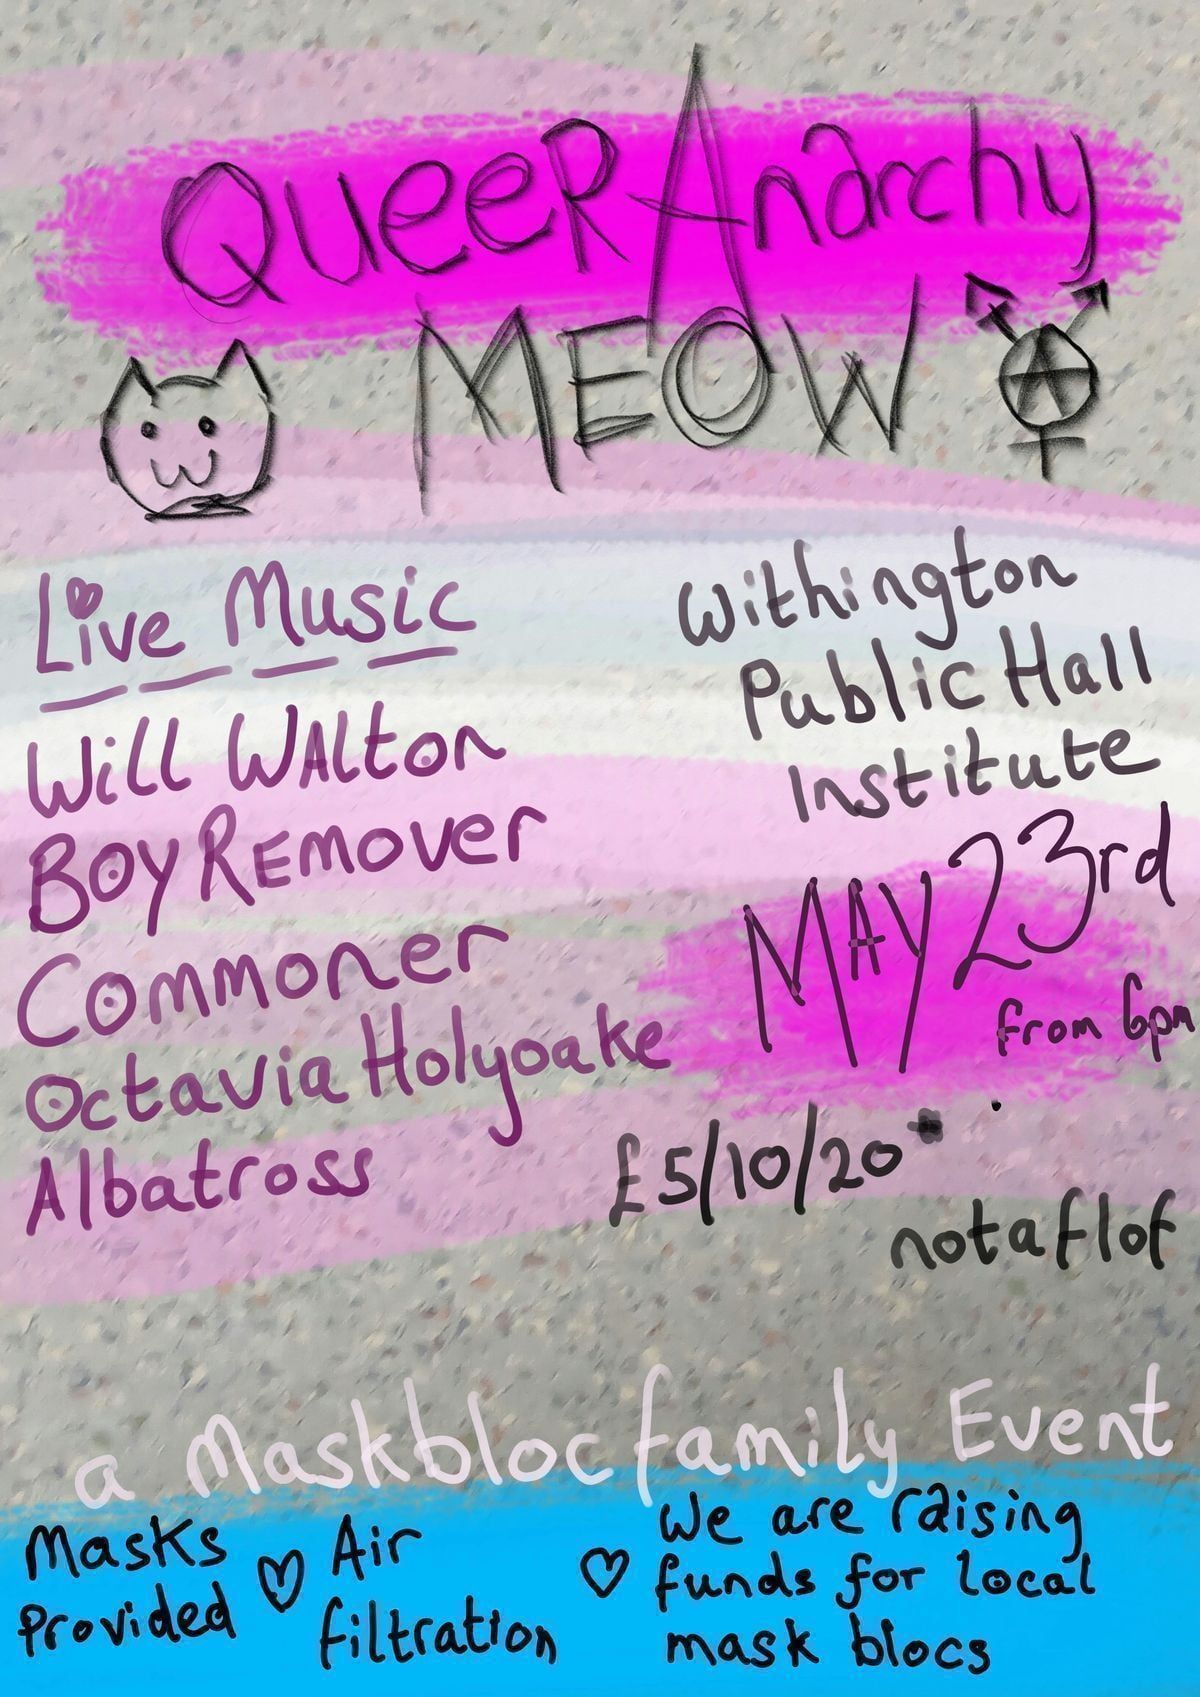 QueeR Anarchy
MEOW
Live Music
Will WAlton
BOY REmover
Commoner
Octavia Holyoake
Albatross
Withington
Public Hall
Institute
MAY 23rd
from 6pm
£5/10/20*
notaflof
a Maskbloc family Event
Masks
Provided
Air
filtration
We are raising
funds for local
mask blocs